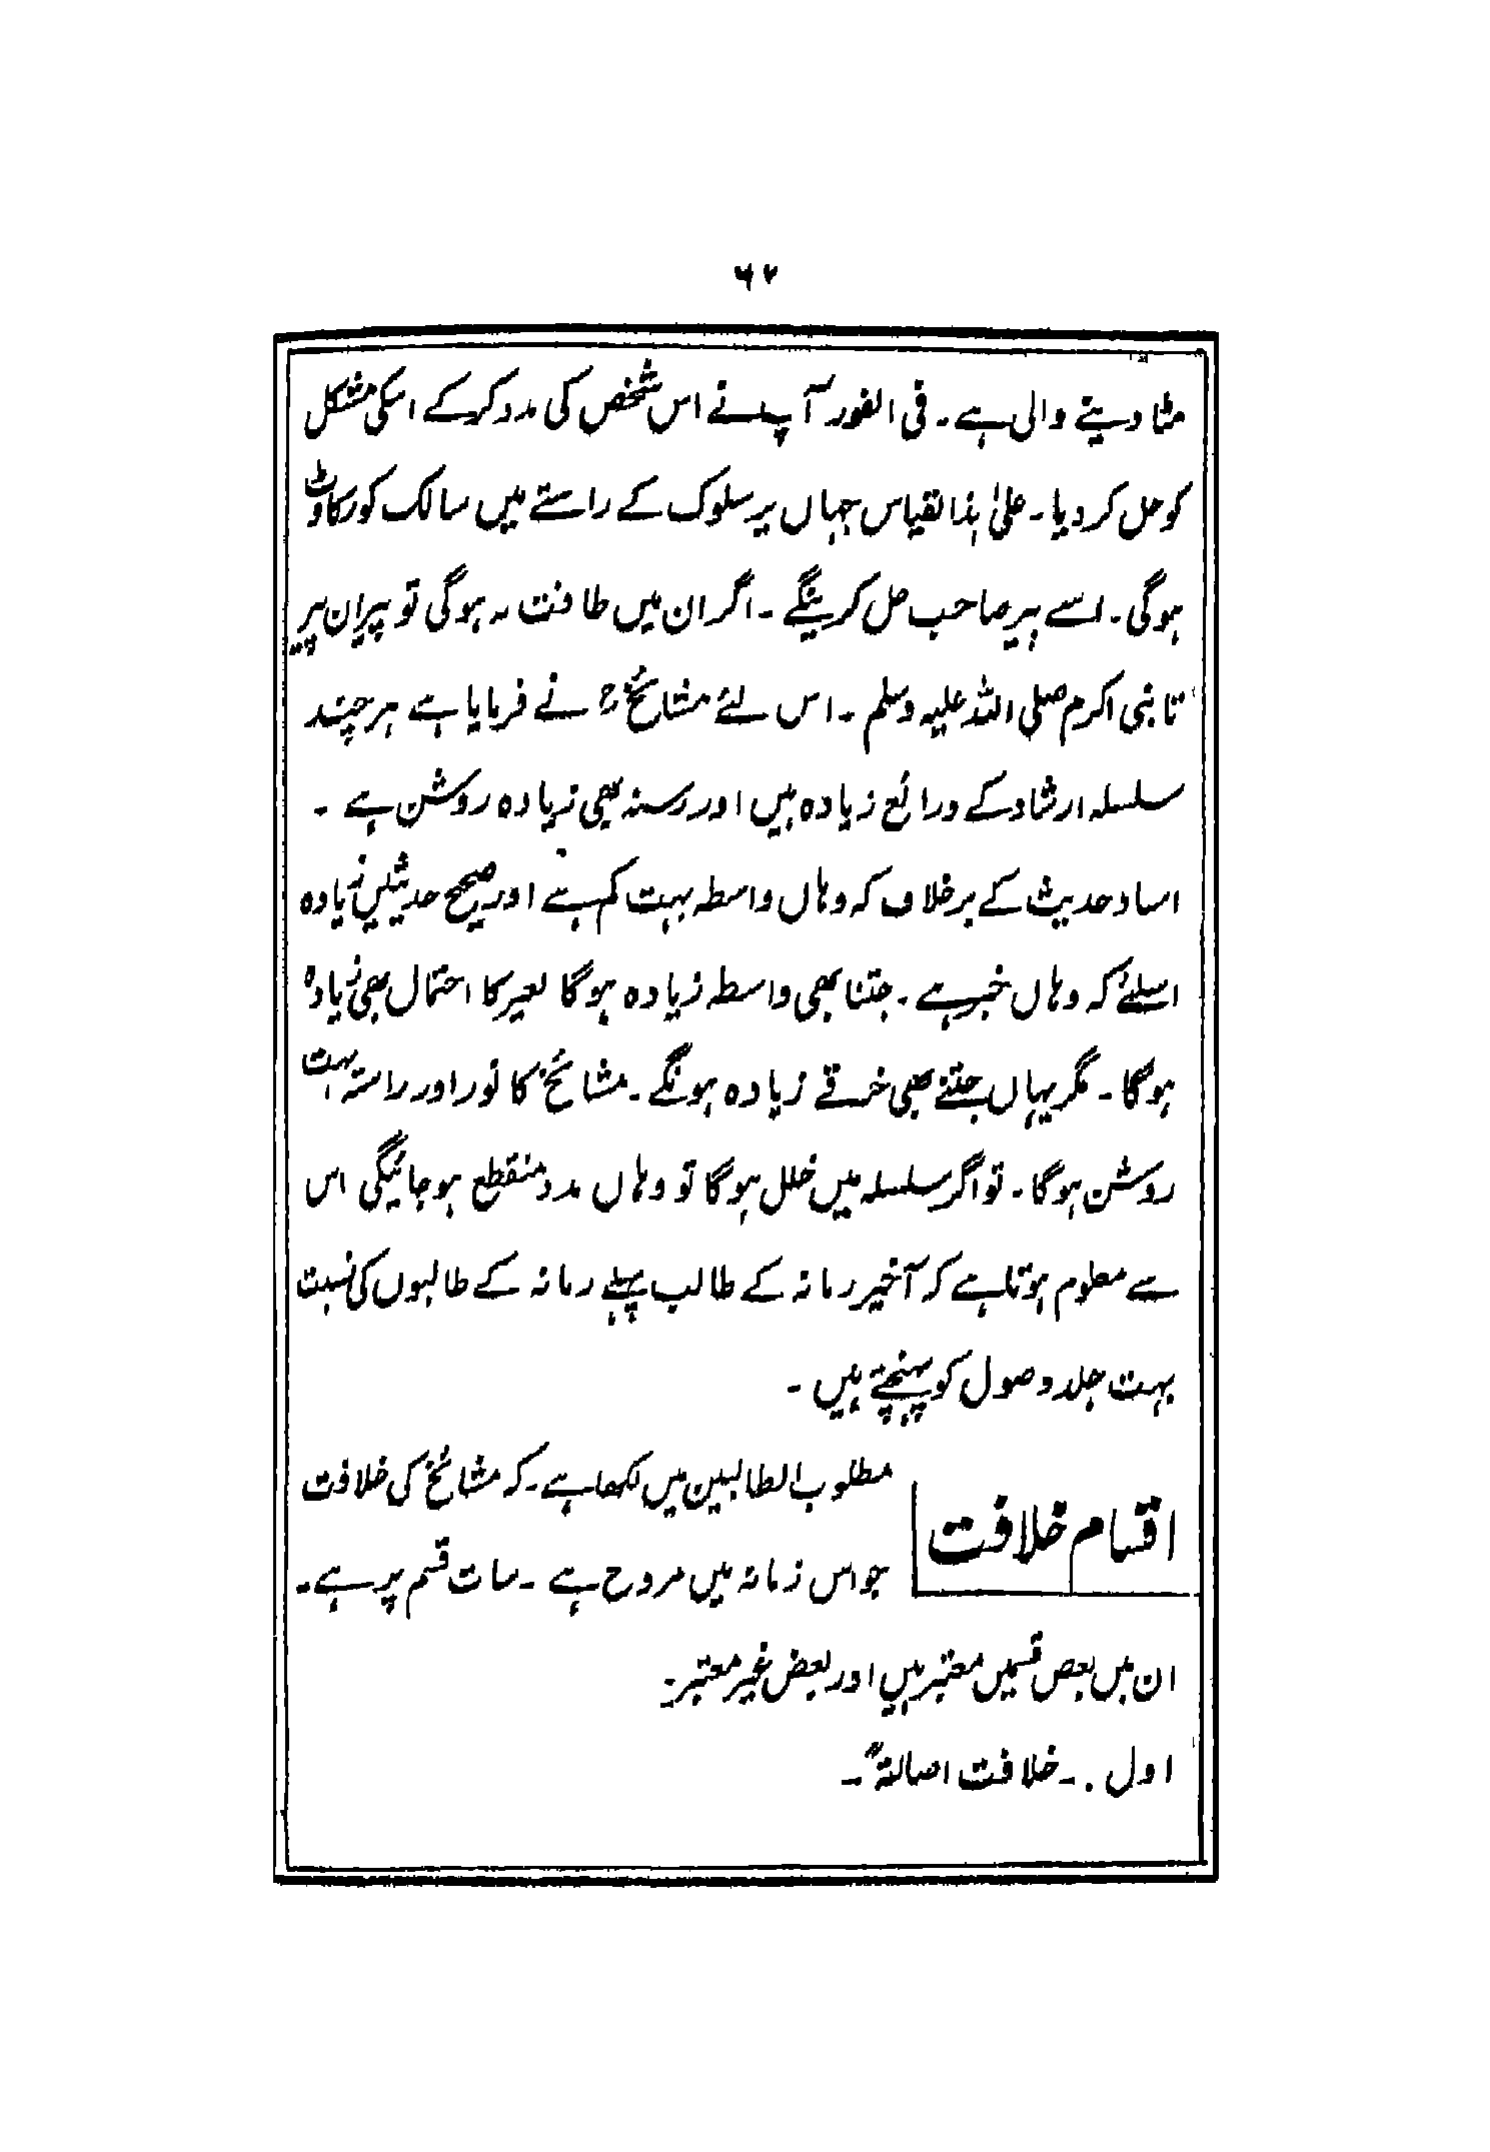 ۶۷
مٹا دینے والی ہے۔ فی الفور آپ نے اس شخص کی مدد کرکے اسکی مشکل
کو حل کر دیا۔ علیٰ ہذا لقیاس جہاں پر سلوک کے راستے میں سالک کو رکاوٹ
ہوگی۔ اسے پیر صاحب حل کرینگے۔ اگر ان میں طاقت نہ ہوگی تو پیران پیر
تا نبی اکرم صلی اللہ علیہ وسلم۔ اس لئے مشائخؒ نے فرمایا ہے ہر چند
سلسلہ ارشاد کے ذرائع زیادہ ہیں اور رستہ بھی زیادہ روشن ہے۔
اسناد حدیث کے برخلاف کہ وہاں واسطہ بہت کم ہے اور صحیح حدیثیں زیادہ
اسلئے کہ وہاں خبر ہے۔ جتنا بھی واسطہ زیادہ ہوگا تغیر کا احتمال بھی زیادہ
ہوگا۔ مگر یہاں جتنے بھی خرقے زیادہ ہونگے۔ مشائخ کا نور اور راستہ بہت
روشن ہوگا۔ تو اگر سلسلہ میں خلل ہوگا تو وہاں مدد منقطع ہو جائیگی اس
سے معلوم ہوتا ہے کہ آخیر زمانہ کے طالب پہلے زمانہ کے طالبوں کی نسبت
بہت جلد وصول کو پہنچتے ہیں۔
اقسام خلافت
مطلوب الطالبین میں لکھا ہے۔ کہ مشائخ کی خلافت
جو اس زمانہ میں مروج ہے۔ سات قسم پر ہے۔
ان میں بعض قسمیں معتبر ہیں اور بعض غیر معتبر۔
اول۔۔ خلافت اصالتہً۔